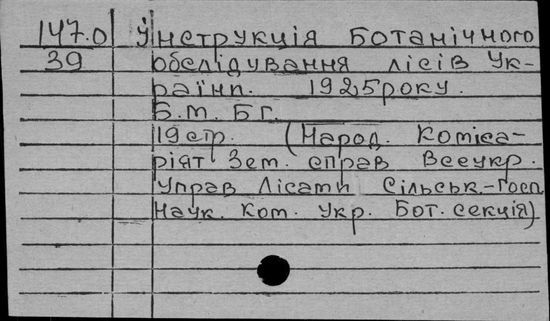 147.0 Інструкція Ботанічного
39 обслідування лісів Ук-
раїни. 1925 року.
Б.М. Б Г.
19 стр. (Народ. Коміса-
ріят Зем. справ Всеукр.
Управ Лісами Сільськ.-Госп
Наук. Ком. Укр. Бот. секція)